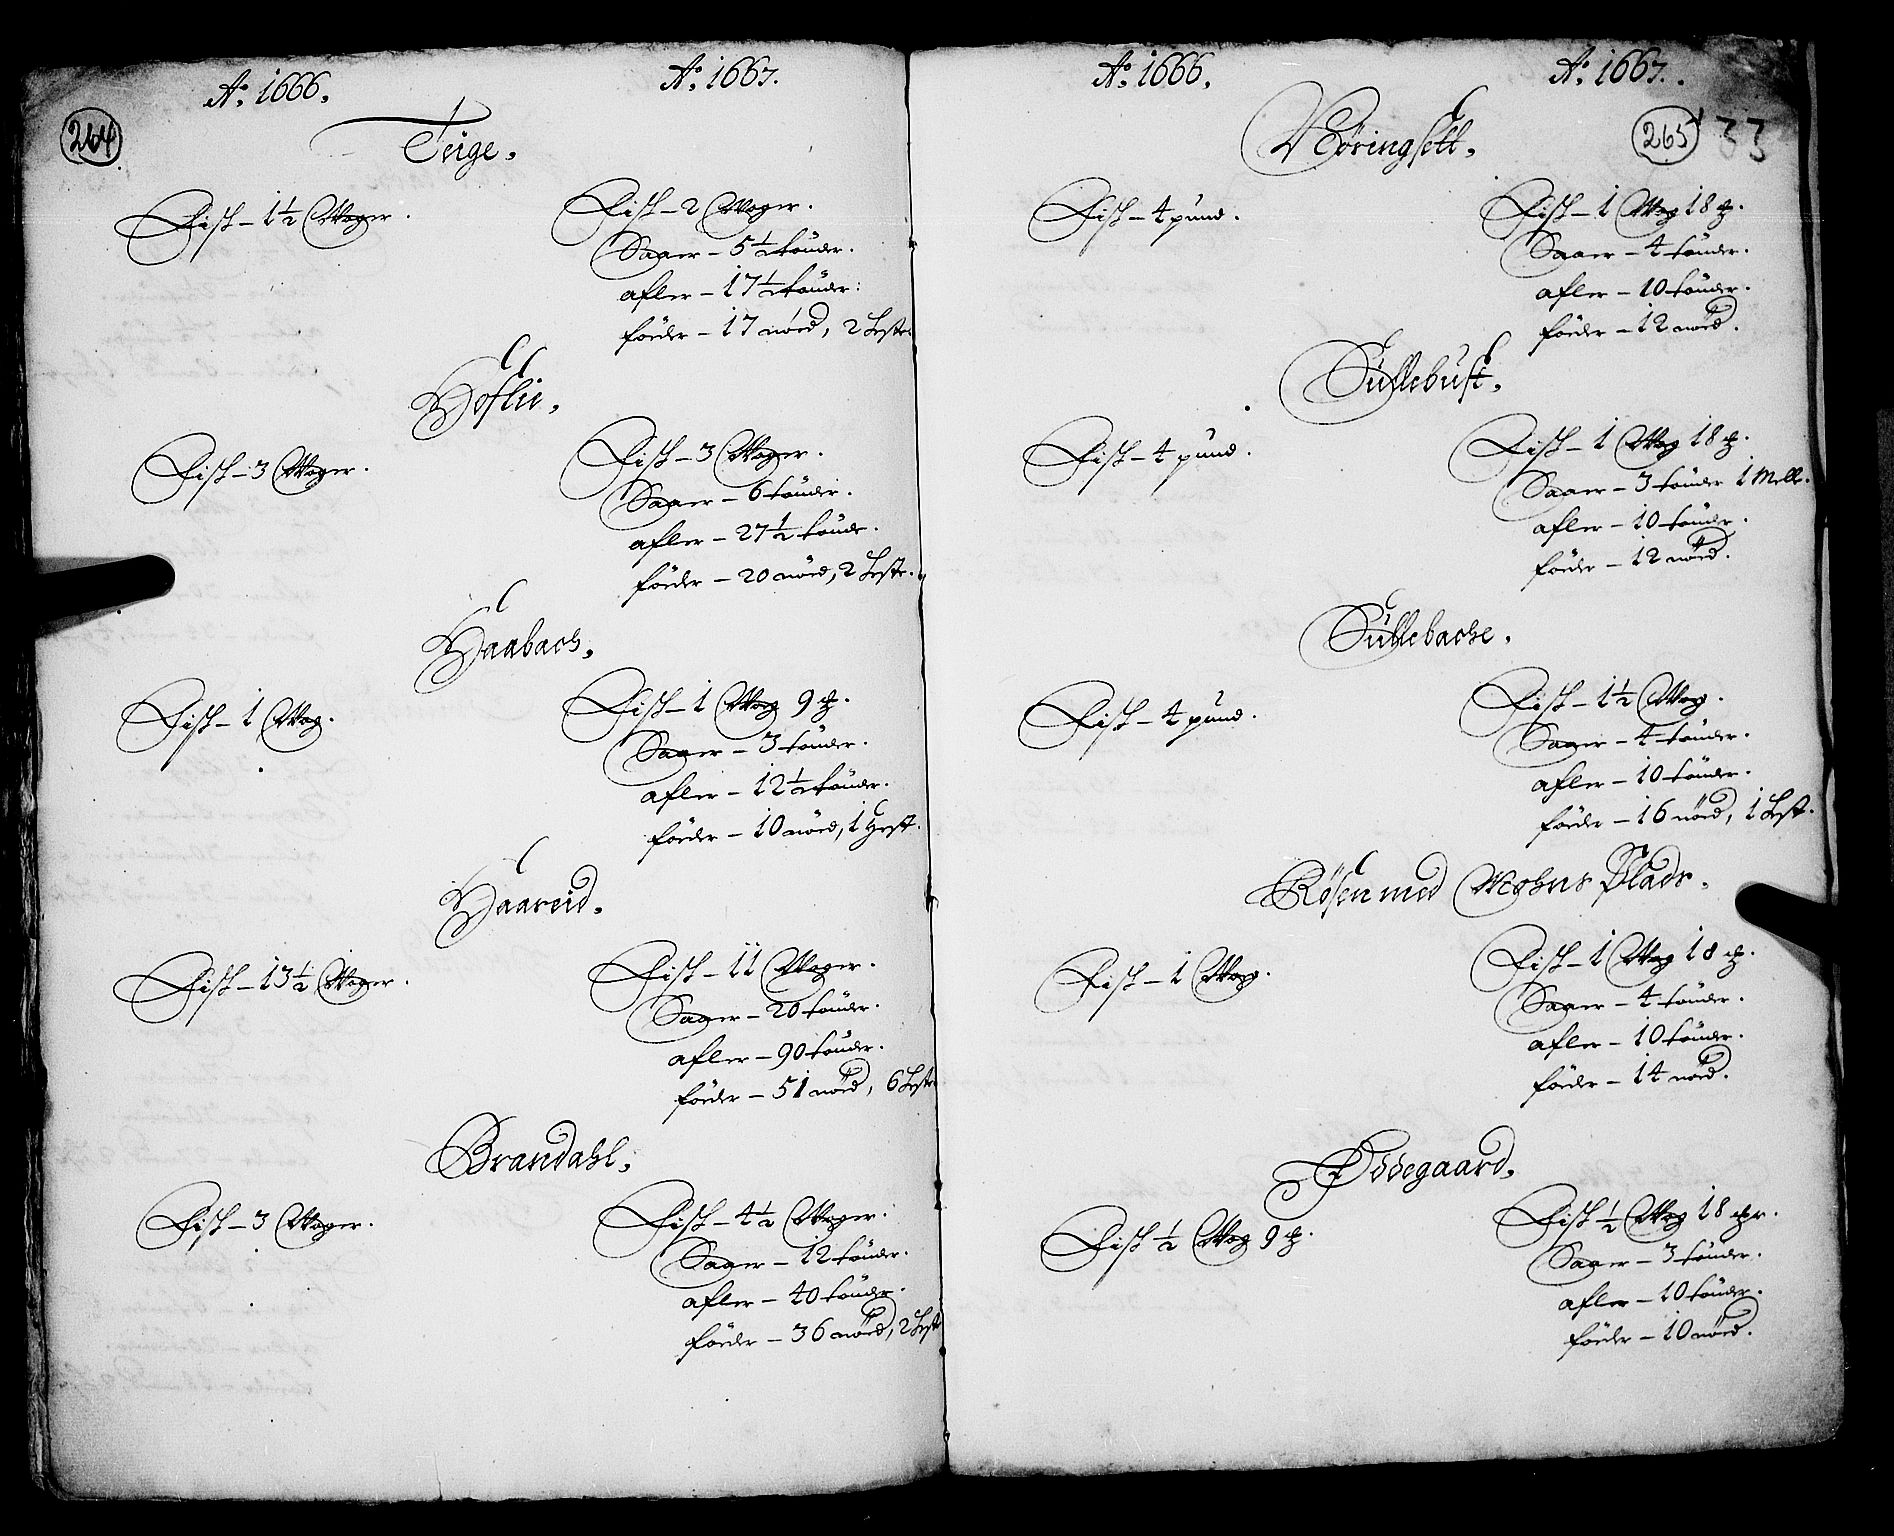 264
Ao. 1666.
Ao. 1667.
Teige.
Fisk – 1½ Woger.
Fisk – 2 Woger.
Saaer – 5½ tönder.
afler – 17½ tönder:
föeder – 17 nöed, 2 Heste.
Hoflie.
Fisk – 3 Woger.
Fisk – 3 Woger.
Saaer – 6 tönder.
afler – 27½ tönde.
föeder – 20 nöed, 2 Heste.
Haabach.
Fisk – 1 Wog.
Fisk – 1 Wog 9 ℔.
Saaer – 3 tönder.
afler – 12½ tönder.
föeder – 10 nöed, 1 Hest.
Haareid.
Fisk – 13½ Woger.
Fisk – 11 Woger.
Saaer – 20 tönder.
afler – 90 tönder.
föeder – 51 nöed, 6 Heste
Brandahl.
Fisk – 3 Woger.
Fisk – 4½ Woger.
Saaer – 12 tönder.
afler – 40 tönder.
föeder – 36 nöed, 2 Hest
265
33
Ao. 1666.
Ao. 1667.
Nöringsett.
Fisk – 4 pund.
Fisk – 1 Wog 18 ℔.
Saaer – 4 tönder.
afler – 10 tönder.
föeder – 12 nöed.
Süllebust.
Fisk – 4 pund.
Fisk – 1 Wog 18 ℔.
Saaer – 3 tönder 1 Mell.
afler – 10 tönder.
föeder – 12 nöed.
Süllebache.
Fisk – 4 pund.
Fisk – 1½ Wog.
Saaer – 4 tönder.
afler – 10 tönder.
föeder – 16 nöed, 1 Hest.
Rösen med Mohns Plads.
Fisk – 1 Wog.
Fisk – 1 Wog 18 ℔.
Saaer – 4 tönder.
afler – 10 tönder.
föeder – 14 nöed.
Ødegaard.
Fisk ½ Wog 9 ℔.
Fisk ½ Wog 18 ℔r.
Saaer – 3 tönder.
afler – 10 tönder.
föeder – 10 nöed.